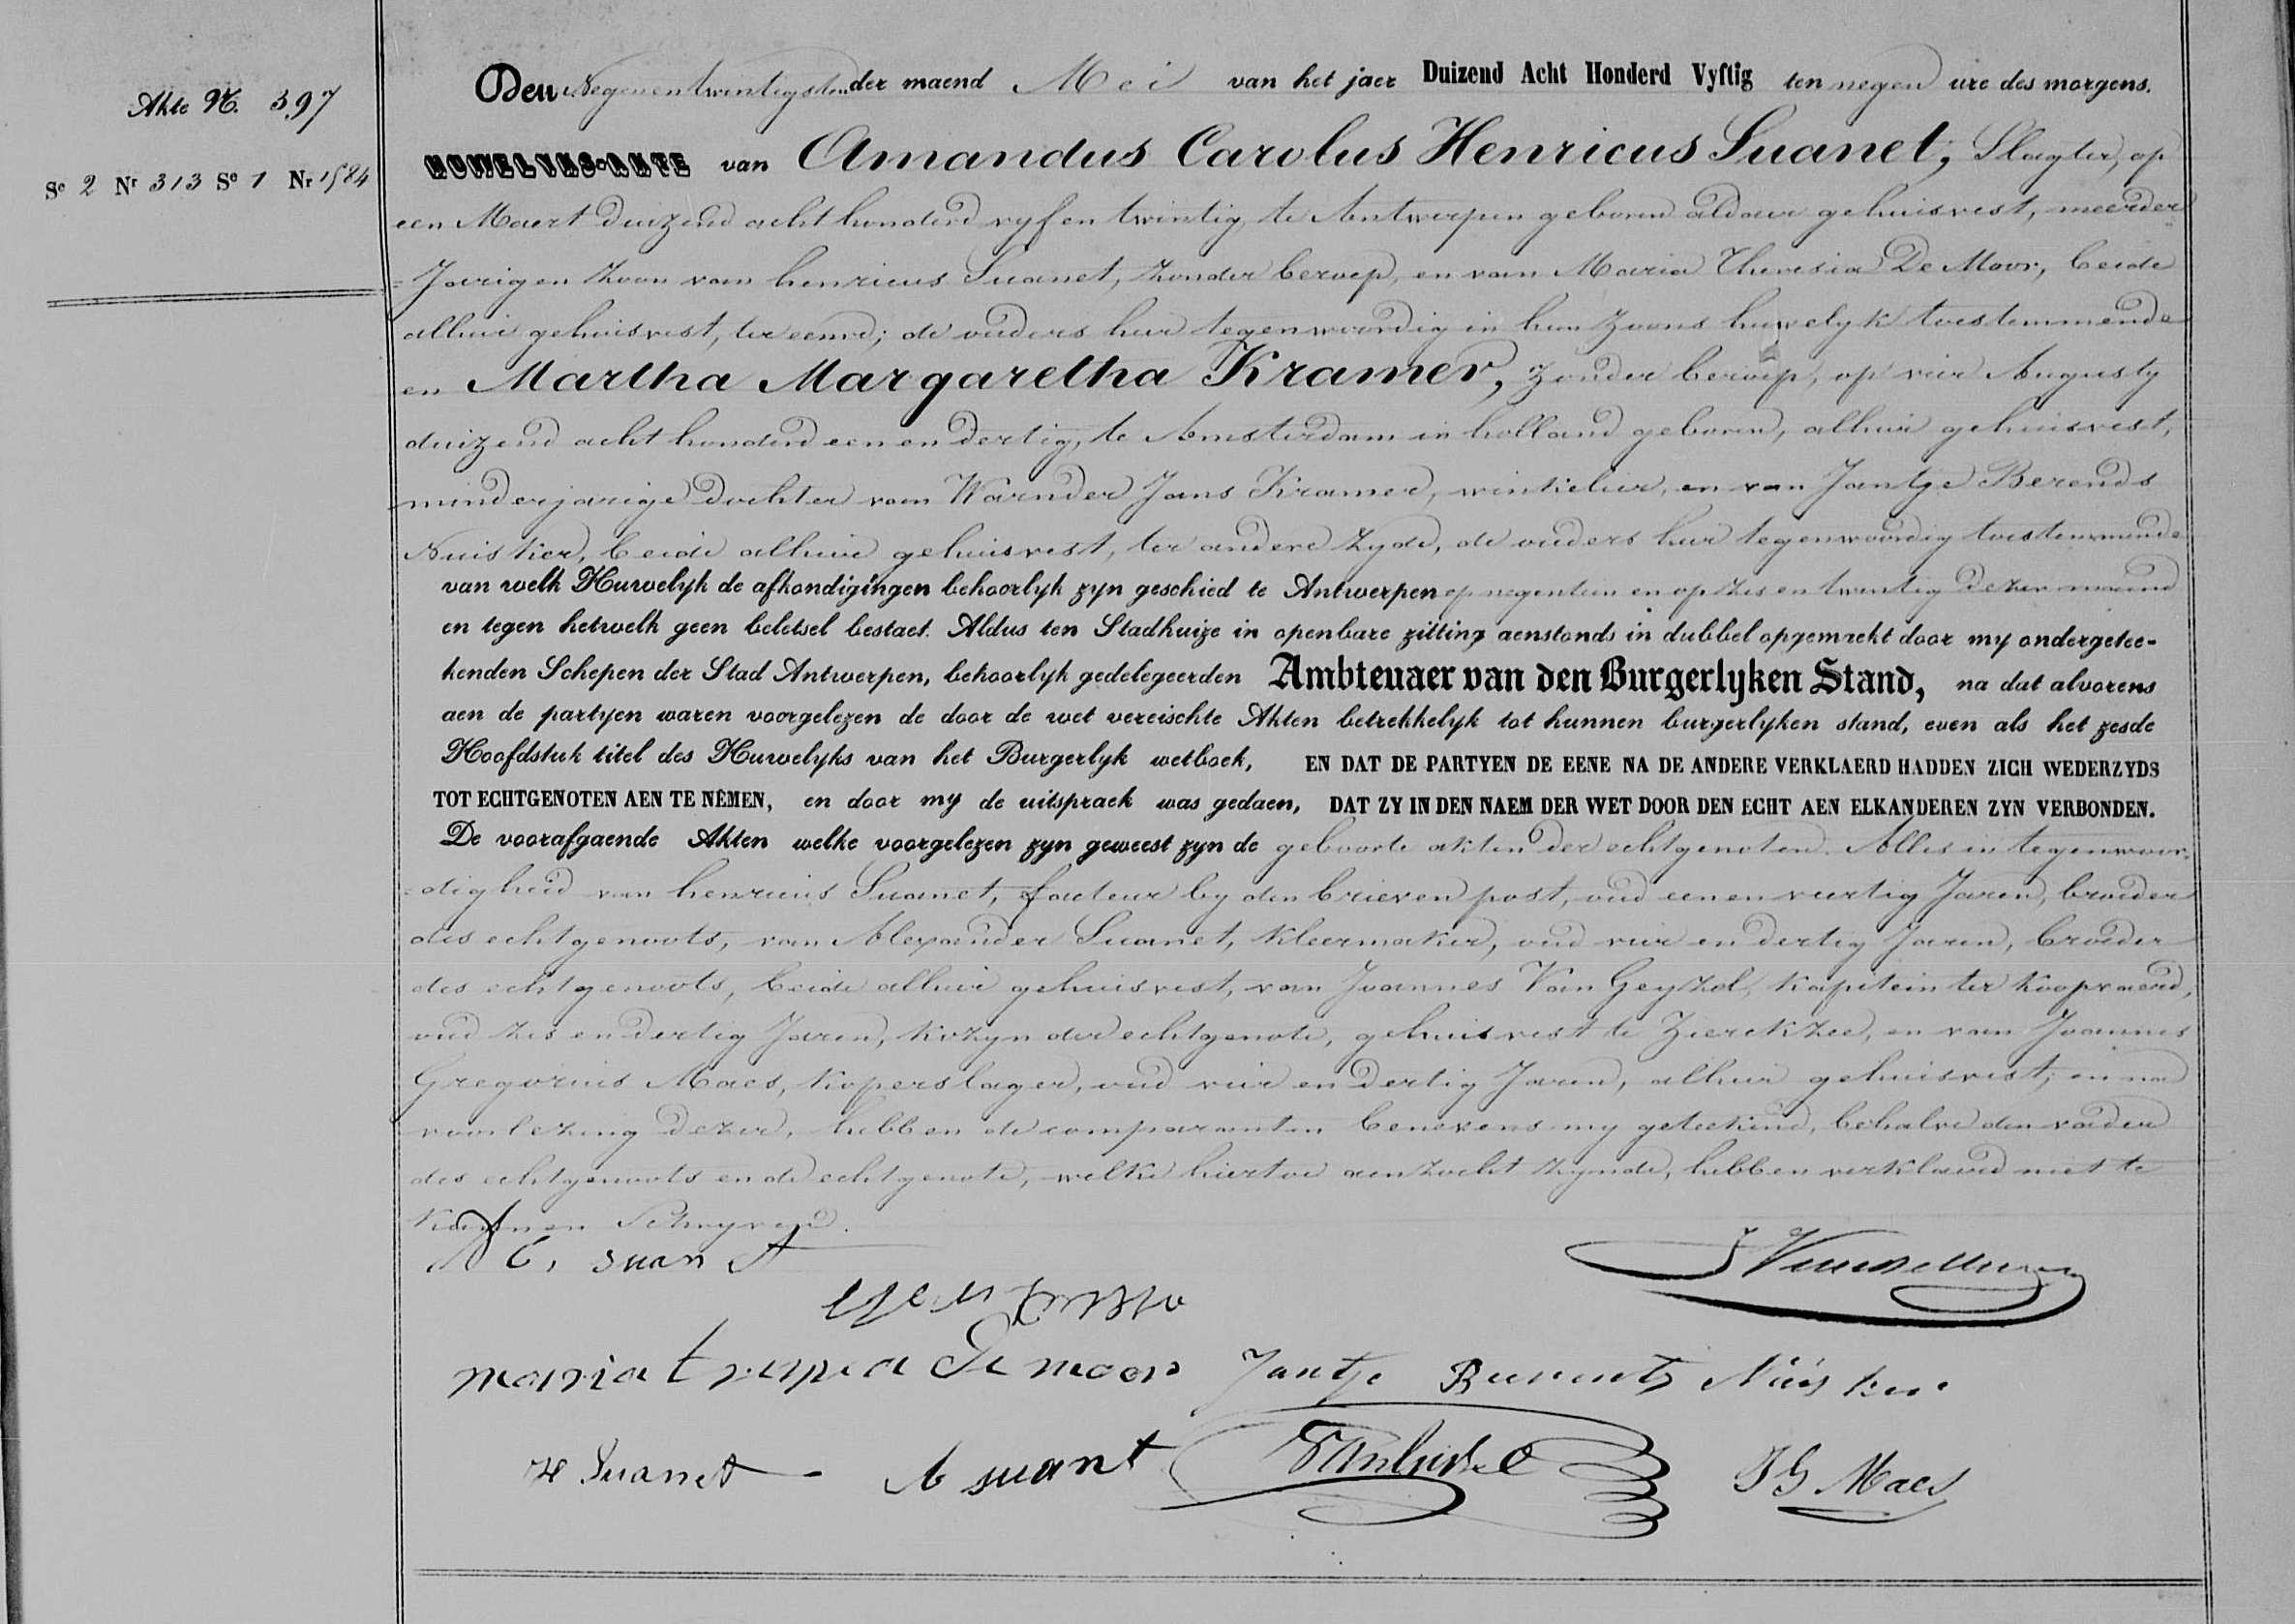 Akte N. 397
Se 2 Nr 313 Se 1 Nr 1584
Den Negenentwintigsten der maend Mei van het jaer Duizend Acht Honderd Vyftig ten negen ure des morgens.
HUWELYKS-AKTE van Amandus Carolus Henricus Suanet, Slagter, op
een Maert duizend acht honderd vyf en twintig, te Antwerpen geboren aldaer gehuisvest, meerder
=Jarigen Zoon van henricus Suanet, zonder beroep, en van Maria Theresia De Moor, beide
alhier gehuisvest, ter eenre; de ouders hier tegenwoordig in hun Zoons huwelyk toestemmende
en Martha Margaretha Kramer, Zonder beroep, op vier Augusty
duizend acht honderd een en dertig, te Amsterdam in holland geboren, alhier gehuisvest,
minderjarige dochter van Warnder Jans Kramer, winkelier, en van Jantje Berends
Nuistier, beide alhier gehuisvest, ter andere Zyde, de ouders hier tegenwoordig toestemmende
van welk Huwelyk de afkondigingen behoorlyk zyn geschied te Antwerpen op negentien en op zes en twintig dezer maend
en tegen hetwelk geen beletsel bestaet. Aldus ten Stadhuize in openbare zitting aenstonds in dubbel opgemaekt door my ondergetee-
kenden Schepen der Stad Antwerpen, behoorlyk gedelegeerden Ambtenaer van den Burgerlyken Stand, na dat alvorens
aen de partyen waren voorgelezen de door de wet vereischte Akten betrekkelyk tot hunnen burgerlyken stand, even als het zesde
Hoofdstuk titel des Huwelyks van het Burgerlyk wetboek, EN DAT DE PARTYEN DE EENE NA DE ANDERE VERKLAERD HADDEN ZICH WEDERZYDS
TOT ECHTGENOTEN AEN TE NÉMEN, en door my de uitspraek was gedaen, DAT ZY IN DEN NAEM DER WET DOOR DEN ECHT AEN ELKANDEREN ZYN VERBONDEN.
De voorafgaende Akten welke voorgelezen zyn geweest zyn de geboorte akten der echtgenoten. Alles in tegenwoor-
=digheid van henricus Suanet, facteur by den brieven post, oud een en veertig Jaren, broeder
des echtgenoots, van Alexander Suanet, Kleermaker, oud vier en dertig Jaren, broeder
des echtgenoots, beide alhier gehuisvest, van Joannes Van Geyzel, Kapitein ter Koopvaerd,
oud zes en dertig Jaren, Kozyn der echtgenote, gehuisvest te Zierckzee, en van Joannes
Gregorius Maes, Koperslager, oud vier en dertig Jaren, alhier gehuisvest; en na
voorlezing dezer, hebben de comparanten benevens my geteekend, behalve den vader
des echtgenoots en de echtgenote, welke hiertoe aenzocht zynde, hebben verklaerd niet te
Kunnen Schryven.
A C, suanet
maria tresia De moor Jantje Berents Nuis
H Suanet A suant JG Maes